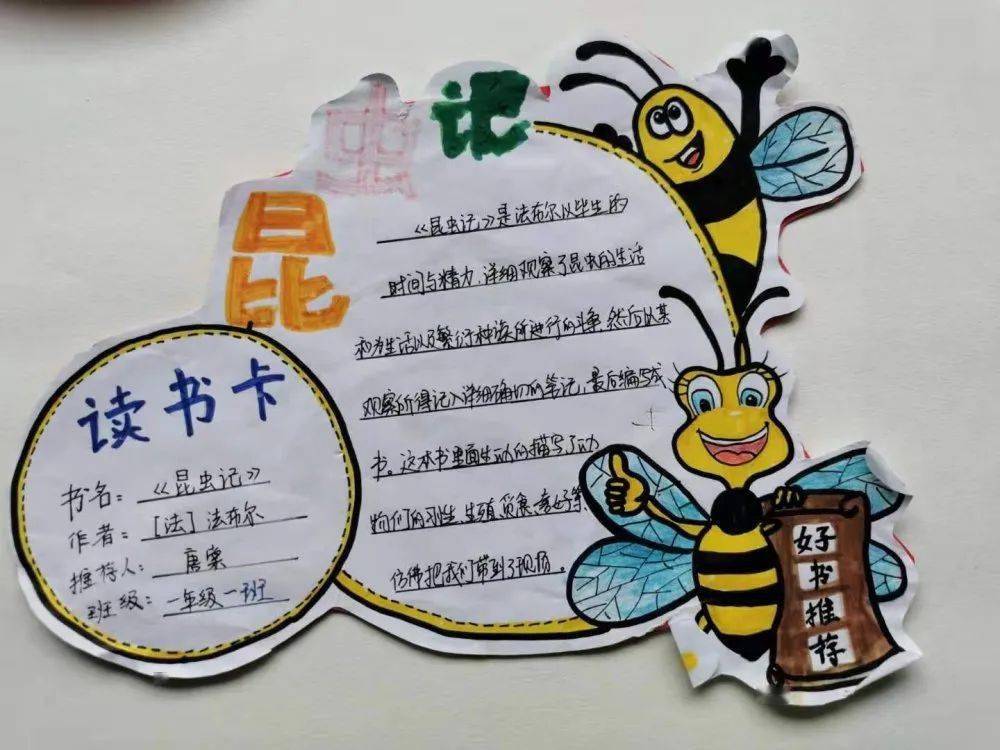 昆虫记
读书卡
书名：《昆虫记》
作者：[法]法布尔
推荐人：唐案
班级：一年级一班
《昆虫记》是法布尔以毕生的
时间与精力，详细观察了昆虫的生活
和为生活以及繁衍种族所进行的斗争，然后以某
观察所得记入详细确切的笔记，最后编写成
书。这本书里面生动的描写了动
物们的习性、生殖、觅食、喜好等
仿佛把我们带到了现场。
好
书
推
荐